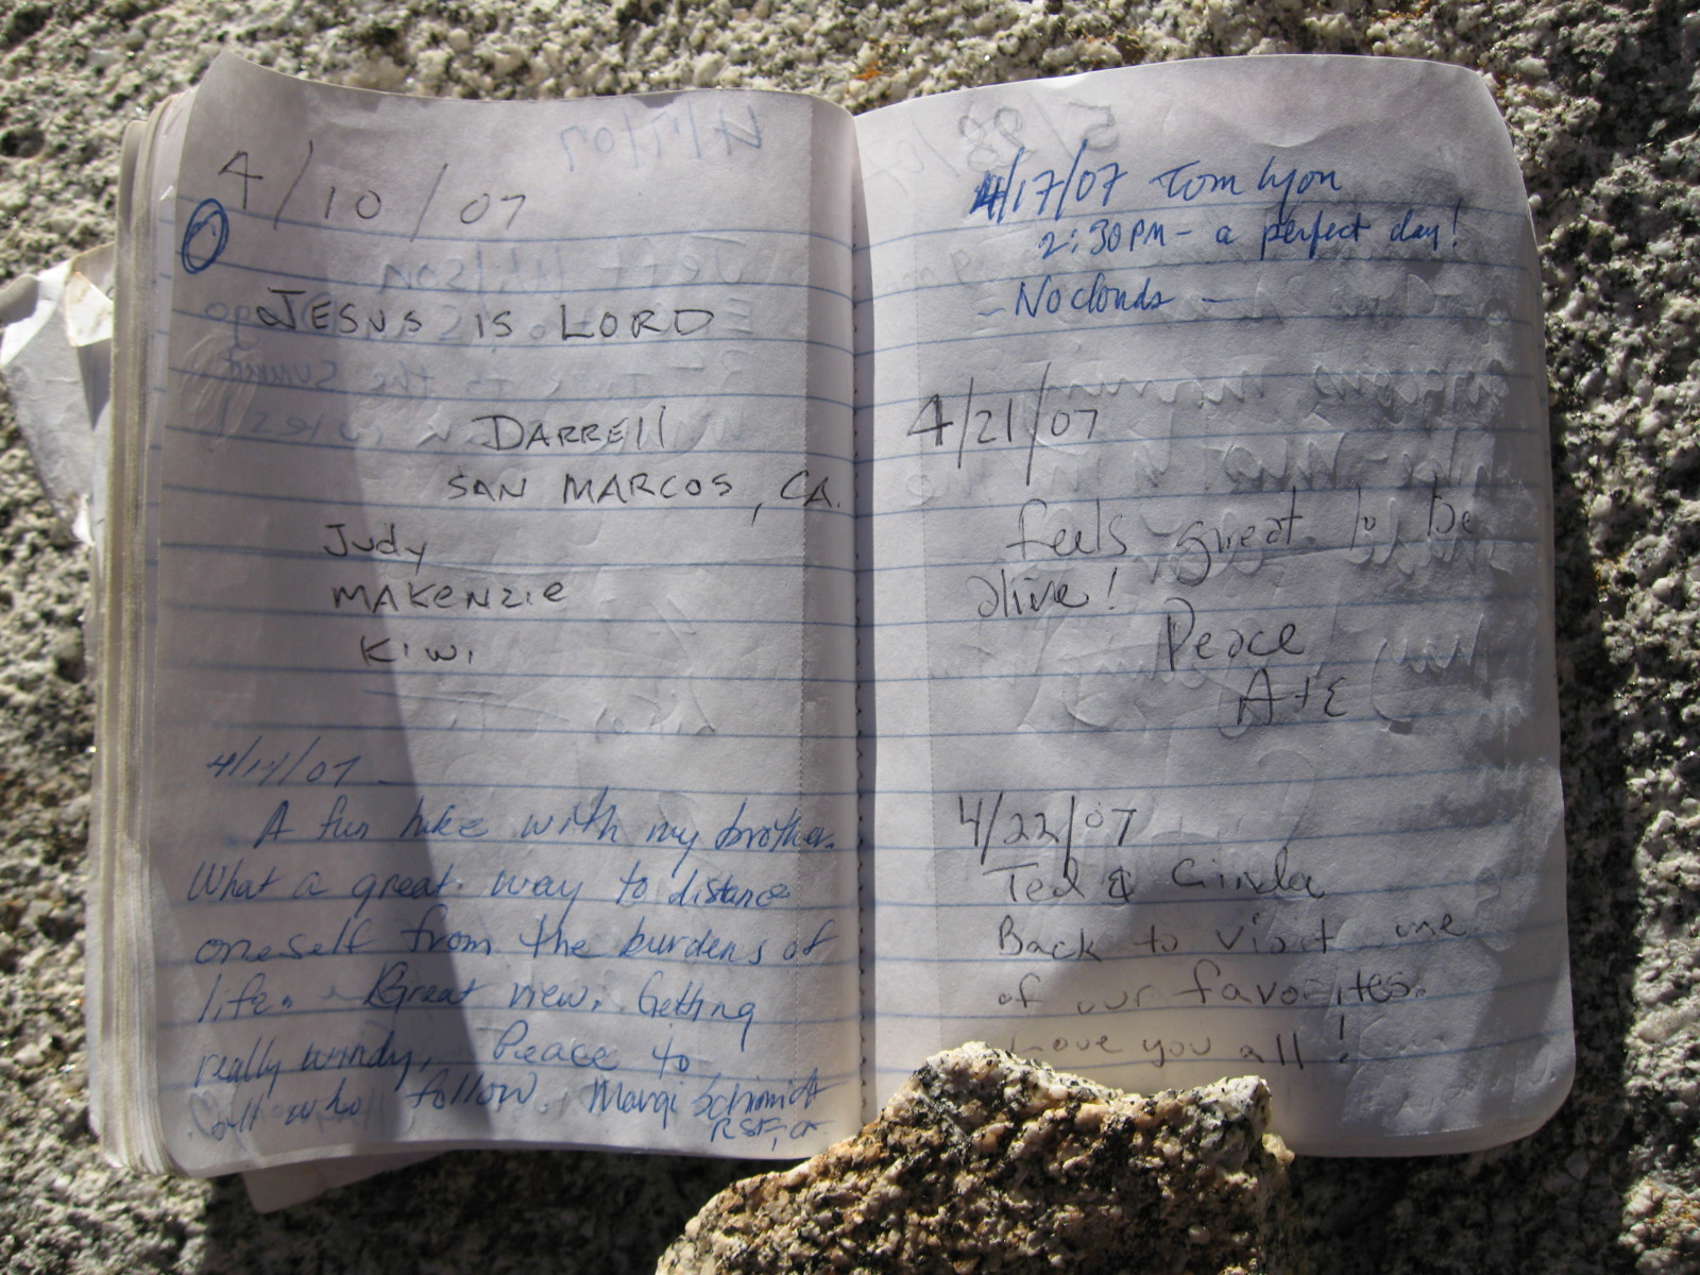 4/10/07
JESUS IS LORD
DARRELL
SAN MARCOS, CA.
Judy
MAKENZIE
KIWI
4/14/07
A fun hike with my brother.
What a great way to distance
oneself from the burdens of
life. Great view. Getting
really windy, Peace to
all who follow. Margi Schmidt
RSF, CA
4/17/07 Tom Lyon
2:30PM - a perfect day!
- No clouds -
4/21/07
feels great to be
alive!
Peace
A+E
4/22/07
Ted & Cinda
Back to visit one
of our favorites.
Love you all!